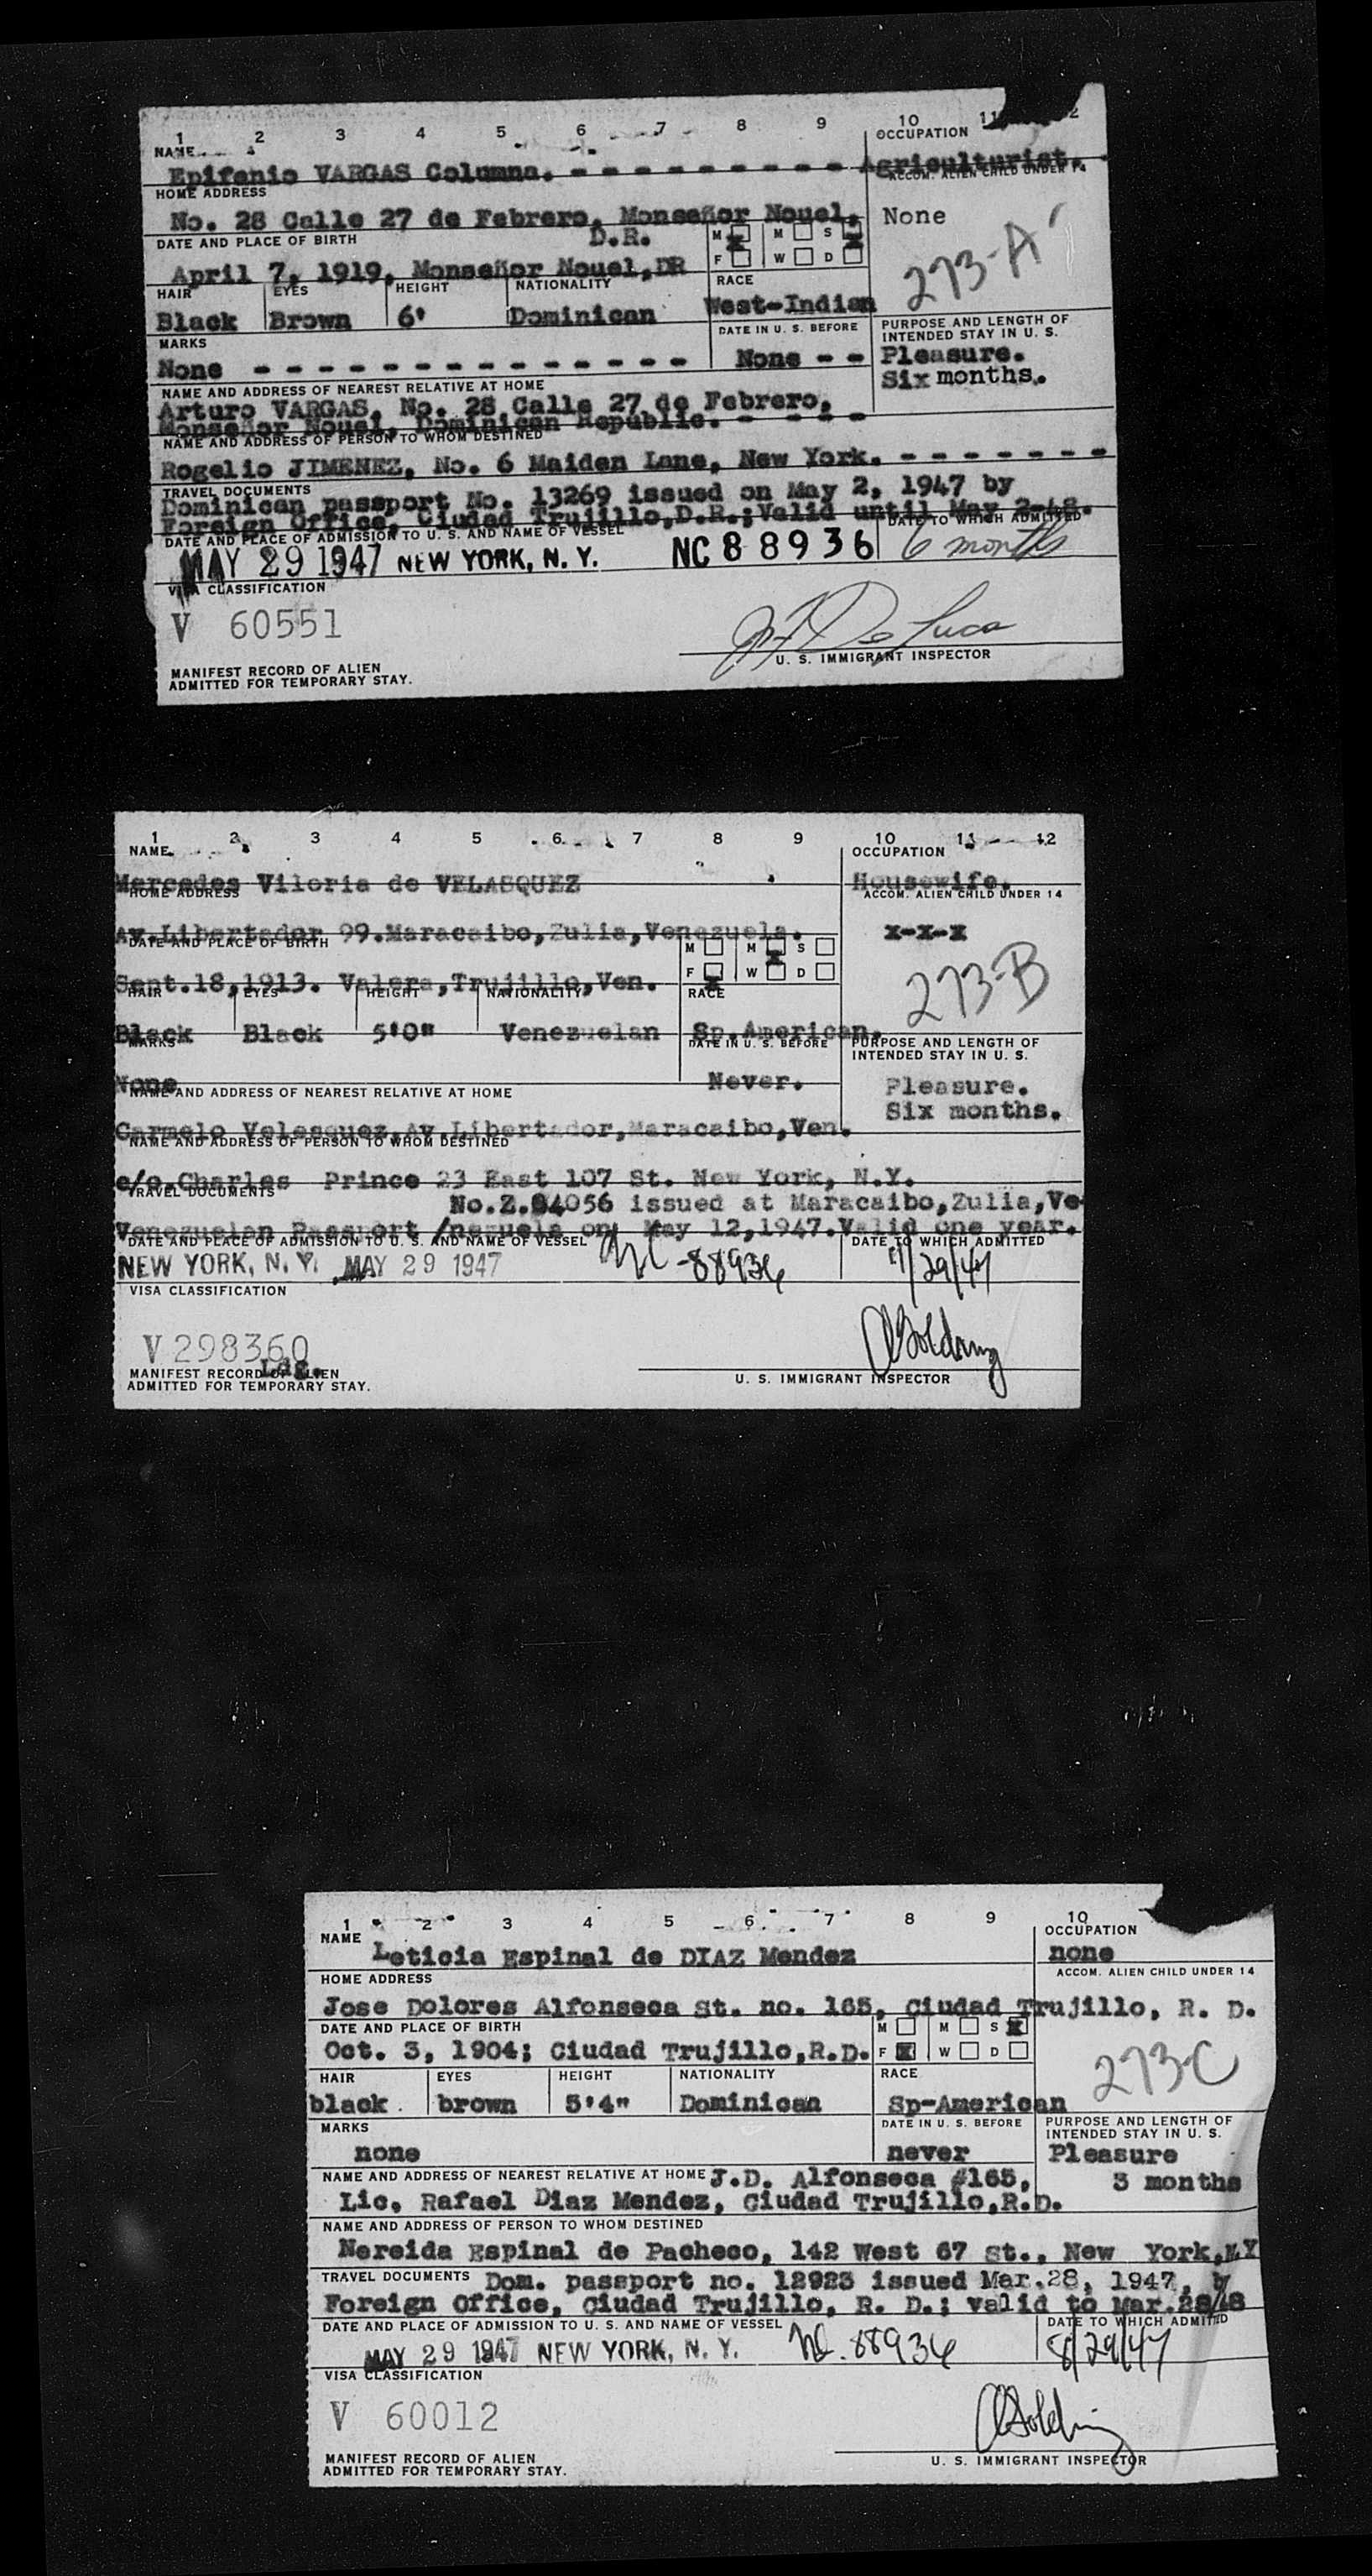 1 2 3 4 5 6 7 8 9 10 11 2
NAME OCCUPATION
Epifanio VARGAS Columna. - - - - - - - - - Agriculturist.
HOME ADDRESS ACCOM. ALIEN CHILD UNDER 14
No. 28 Calle 27 de Febrero, Monseñor Nouel, None
D.R.
DATE AND PLACE OF BIRTH M M S
April 7, 1919, Monseñor Nouel, DR F W D
273-A
HAIR EYES HEIGHT NATIONALITY RACE
Black Brown 6' Dominican West-Indian
MARKS DATE IN U. S. BEFORE PURPOSE AND LENGTH OF INTENDED STAY IN U. S.
None - - - - - - - - - - - - - - None - - Pleasure.
Six months.
NAME AND ADDRESS OF NEAREST RELATIVE AT HOME
Arturo VARGAS, No. 28, Calle 27 de Febrero,
Monseñor Nouel, Dominican Republic. - - - -
NAME AND ADDRESS OF PERSON TO WHOM DESTINED
Rogelio JIMENEZ, No. 6 Maiden Lane, New York. - - - - - - -
TRAVEL DOCUMENTS
Dominican passport No. 13269 issued on May 2, 1947 by
Foreign Office, Ciudad Trujillo, D.R.; Valid until May 2-48.
DATE AND PLACE OF ADMISSION TO U. S. AND NAME OF VESSEL DATE TO WHICH ADMITTED
MAY 29 1947 NEW YORK, N. Y. NC 88936 6 months
VISA CLASSIFICATION
V 60551
De Luca
U. S. IMMIGRANT INSPECTOR
MANIFEST RECORD OF ALIEN
ADMITTED FOR TEMPORARY STAY.
1 2 3 4 5 6 7 8 9 10 11 12
NAME OCCUPATION
Mercedes Viloria de VELASQUEZ Housewife.
HOME ADDRESS ACCOM. ALIEN CHILD UNDER 14
Av.Libertador 99.Maracaibo,Zulia,Venezuela. X-X-X
DATE AND PLACE OF BIRTH M M S
Sept.18,1913. Valera,Trujillo,Ven. F W D
273-B
HAIR EYES HEIGHT NATIONALITY RACE
Black Black 5'0" Venezuelan Sp.American.
MARKS DATE IN U. S. BEFORE PURPOSE AND LENGTH OF INTENDED STAY IN U. S.
None Never. Pleasure.
Six months.
NAME AND ADDRESS OF NEAREST RELATIVE AT HOME
Carmelo Velasquez,Av.Libertador,Maracaibo,Ven.
NAME AND ADDRESS OF PERSON TO WHOM DESTINED
c/o.Charles Prince 23 East 107 St. New York, N.Y.
TRAVEL DOCUMENTS
No.Z.84056 issued at Maracaibo,Zulia,Ve-
Venezuelan Passport /nezuela on May 12,1947.Valid one year.
DATE AND PLACE OF ADMISSION TO U. S. AND NAME OF VESSEL DATE TO WHICH ADMITTED
NEW YORK, N. Y. MAY 29 1947 NC-88936 11/29/47
VISA CLASSIFICATION
V 298360
Ldg.
MANIFEST RECORD OF ALIEN
ADMITTED FOR TEMPORARY STAY.
U. S. IMMIGRANT INSPECTOR
1 2 3 4 5 6 7 8 9 10
NAME OCCUPATION
Leticia Espinal de DIAZ Mendez none
HOME ADDRESS ACCOM. ALIEN CHILD UNDER 14
Jose Dolores Alfonseca St. no. 165, Ciudad Trujillo, R. D.
DATE AND PLACE OF BIRTH M M S
Oct. 3, 1904; Ciudad Trujillo,R.D. F W D
273-C
HAIR EYES HEIGHT NATIONALITY RACE
black brown 5'4" Dominican Sp-American
MARKS DATE IN U. S. BEFORE PURPOSE AND LENGTH OF INTENDED STAY IN U. S.
none never Pleasure
3 months
NAME AND ADDRESS OF NEAREST RELATIVE AT HOME J.D. Alfonseca #165,
Lic. Rafael Diaz Mendez, Ciudad Trujillo,R.D.
NAME AND ADDRESS OF PERSON TO WHOM DESTINED
Nereida Espinal de Pacheco, 142 West 67 St., New York,N.Y
TRAVEL DOCUMENTS Dom. passport no. 12923 issued Mar.28, 1947, by
Foreign Office, Ciudad Trujillo, R. D.; valid to Mar.28/48
DATE AND PLACE OF ADMISSION TO U. S. AND NAME OF VESSEL DATE TO WHICH ADMITTED
MAY 29 1947 NEW YORK, N. Y. NC. 88936 8/29/47
VISA CLASSIFICATION
V 60012
MANIFEST RECORD OF ALIEN
ADMITTED FOR TEMPORARY STAY.
U. S. IMMIGRANT INSPECTOR